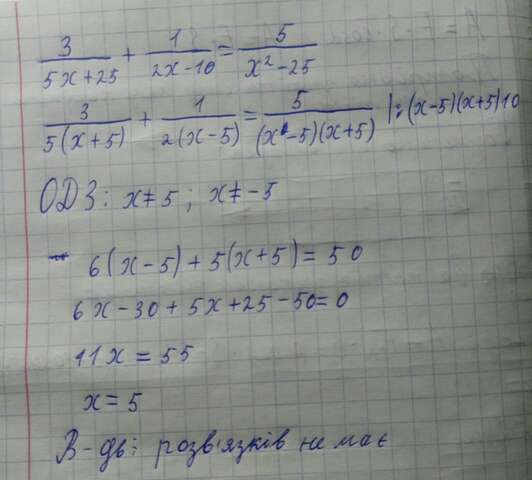 3/(5x+25) + 1/(2x-10) = 5/(x²-25)
3/(5(x+5)) + 1/(2(x-5)) = 5/((x-5)(x+5)) |:(x-5)(x+5)10
ОДЗ: x≠5; x≠-5
6(x-5)+5(x+5)=50
6x-30+5x+25-50=0
11x=55
x=5
В-дь: розв'язків немає